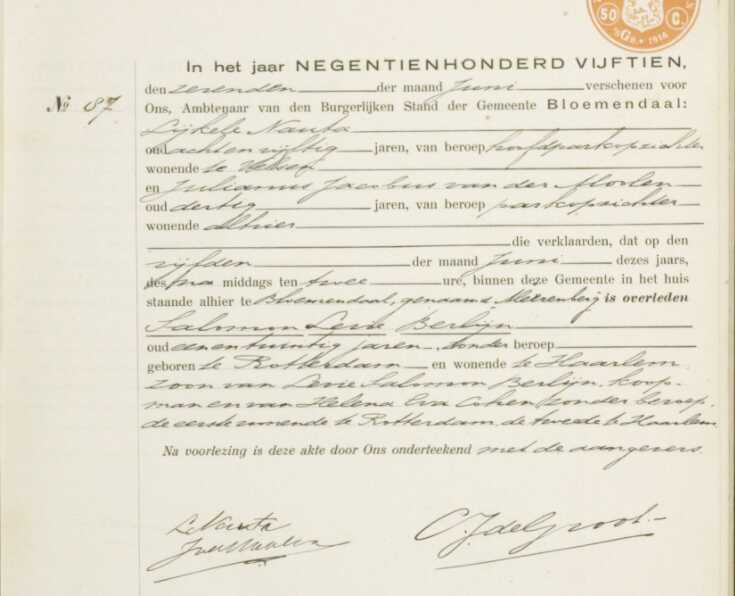 50 C.
1914
In het jaar NEGENTIENHONDERD VIJFTIEN,
den zevenden der maand Juni verschenen voor
No 87
Ons, Ambtenaar van den Burgerlijken Stand der Gemeente Bloemendaal:
Lijkele Nauta
oud achtenvijftig jaren, van beroep hoofdparkopzichter
wonende te Velsen
en Julianus Jacobus van der Moolen
oud dertig jaren, van beroep parkopzichter
wonende alhier
die verklaarden, dat op den
vijfden der maand Juni dezes jaars,
des na middags ten twee ure, binnen deze Gemeente in het huis
staande alhier te Bloemendaal, genaamd Meerenberg is overleden
Salomon Levie Berlijn
oud eenentwintig jaren, zonder beroep
geboren te Rotterdam en wonende te Haarlem
zoon van Levie Salomon Berlijn, koop-
man en van Helena Eva Cohen, zonder beroep,
de eerste wonende te Rotterdam, de tweede te Haarlem
Na voorlezing is deze akte door Ons onderteekend met de aangevers.
L Nauta
C. J. de Groot